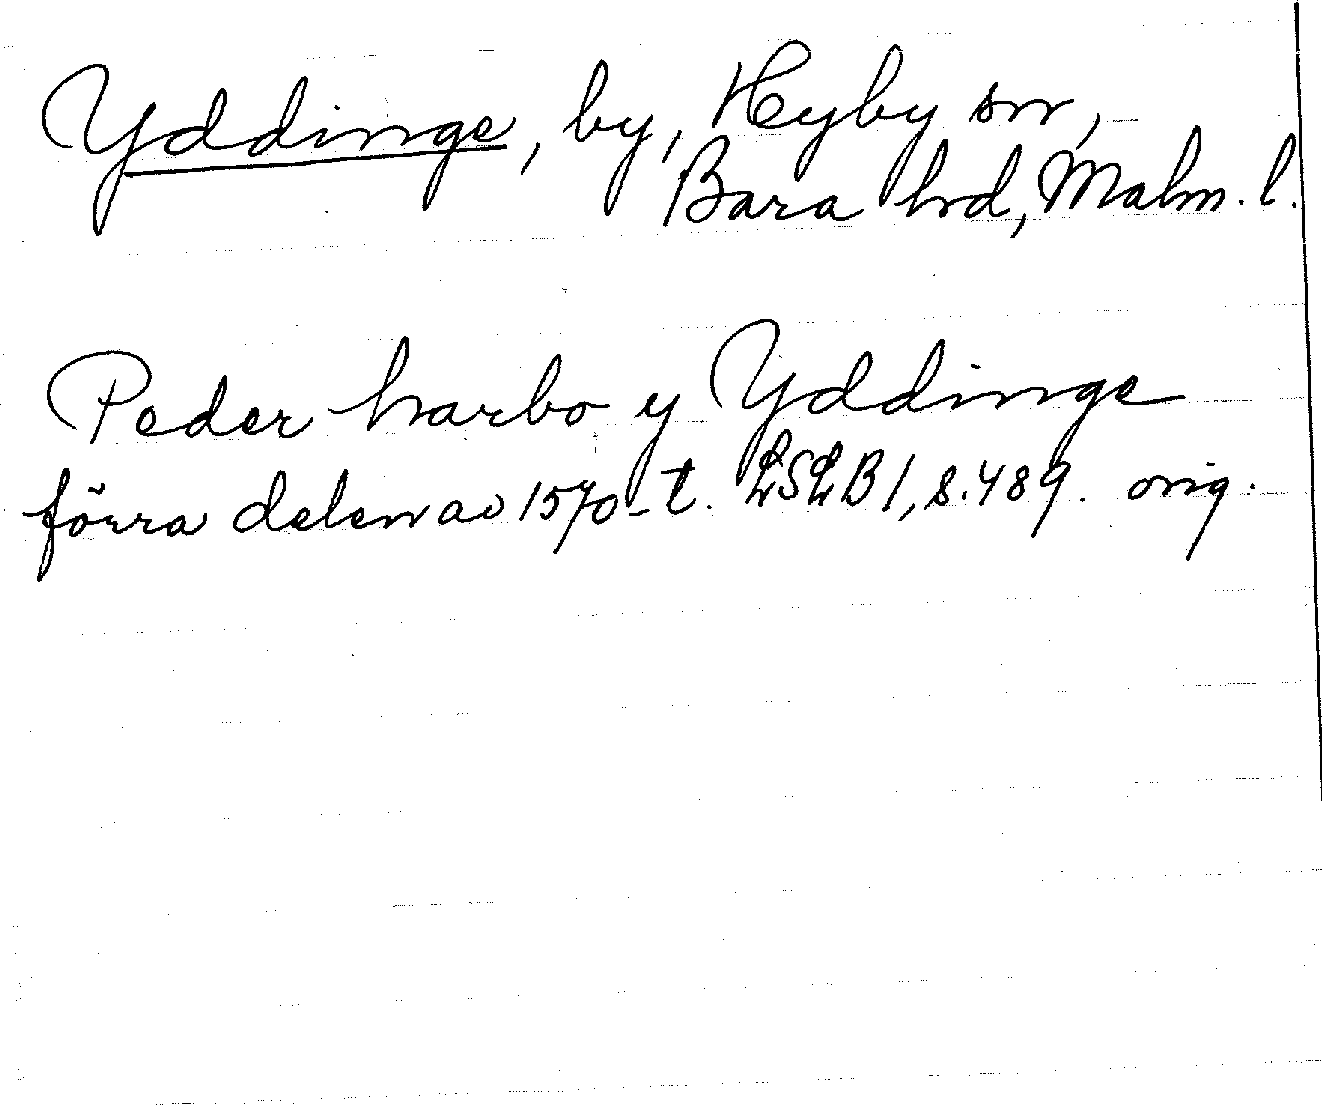 Yddinge, by, Hyby sn,
Bara hrd, Malm. l.
Peder harbo y Yddinge
förra delen av 1570-t. LSLB 1, s. 489. orig.